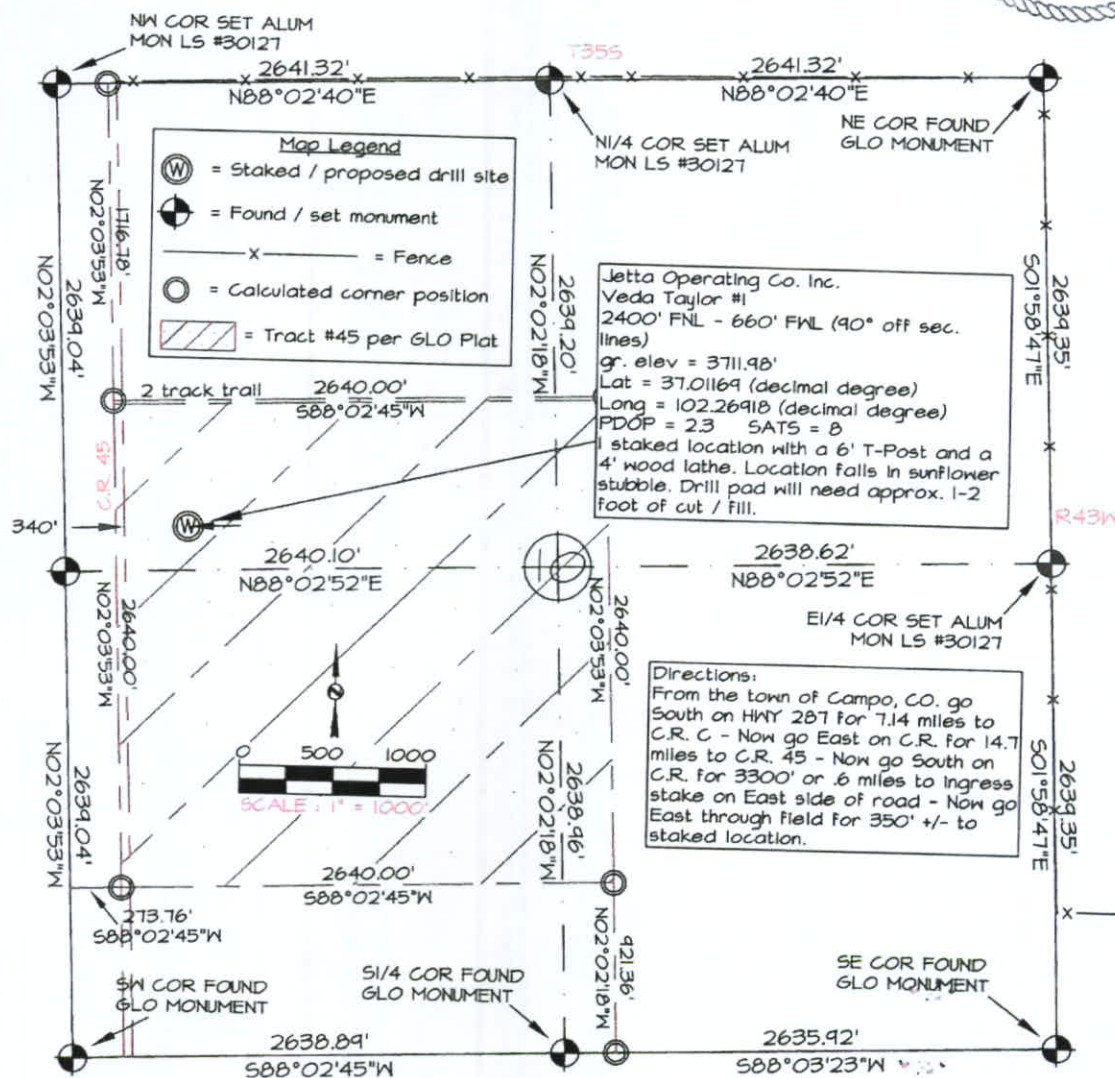 NW COR SET ALUM
MON LS #30127
T35S
2641.32'
N88°02'40"E
2641.32'
N88°02'40"E
N1/4 COR SET ALUM
MON LS #30127
NE COR FOUND
GLO MONUMENT
Map Legend
W = Staked / proposed drill site
= Found / set monument
x = Fence
= Calculated corner position
= Tract #45 per GLO Plat
1716.78'
N02°03'53"W
2639.04'
N02°03'53"W
2639.20'
N02°02'18"W
2639.35'
S01°58'47"E
Jetta Operating Co. Inc.
Veda Taylor #1
2400' FNL - 660' FWL (90° off sec.
lines)
gr. elev = 3711.98'
Lat = 37.01169 (decimal degree)
Long = 102.26918 (decimal degree)
PDOP = 2.3 SATS = 8
I staked location with a 6' T-Post and a
4' wood lathe. Location falls in sunflower
stubble. Drill pad will need approx. 1-2
foot of cut / fill.
2 track trail
2640.00'
S88°02'45"W
C.R. 45
R43W
340'
W
2640.10'
N88°02'52"E
10
2638.62'
N88°02'52"E
2640.00'
N02°03'53"W
2640.00'
N02°03'53"W
E1/4 COR SET ALUM
MON LS #30127
N
0 500 1000
SCALE : 1" = 1000'
Directions:
From the town of Campo, CO. go
South on HWY 287 for 7.14 miles to
C.R. C - Now go East on C.R. for 14.7
miles to C.R. 45 - Now go South on
C.R. for 3300' or .6 miles to ingress
stake on East side of road - Now go
East through field for 350' +/- to
staked location.
2639.04'
N02°03'53"W
2638.96'
N02°02'18"W
2639.35'
S01°58'47"E
2640.00'
S88°02'45"W
273.76'
S88°02'45"W
921.36'
N02°02'18"W
SW COR FOUND
GLO MONUMENT
S1/4 COR FOUND
GLO MONUMENT
SE COR FOUND
GLO MONUMENT
2638.89'
S88°02'45"W
2635.92'
S88°03'23"W